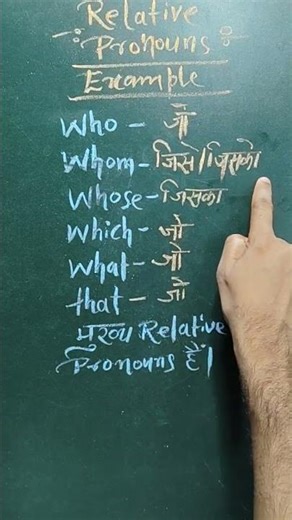 Relative
Pronouns
Example
Who - जो
Whom - जिसे/जिसको
Whose - जिसका
Which - जो
What - जो
that - जो
मुख्य Relative
Pronouns हैं।